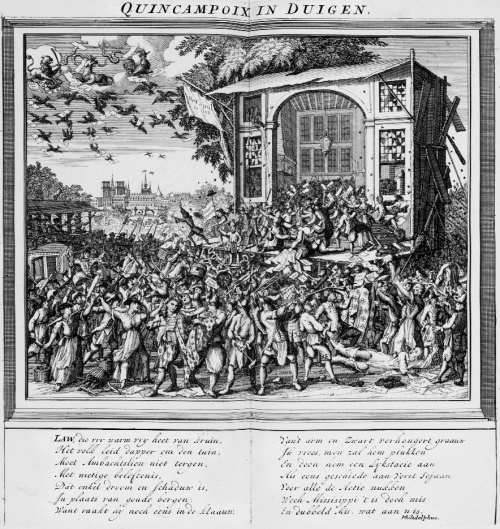 QUINCAMPOIX IN DUIGEN.
LAW, die vry warm vry heet van kruin,
Het volk leid dapper om den tuin,
Moet Ambachtslien niet tergen,
Met nietige beloftenis,
Dat enkel droom en schaduw is,
In plaats van goude bergen.
Want raakt hy noch eens in de klaauw.
Vant arm en Zwart verhongert graauw
In vrees, men zal hem plukken
En doen hem een Lykstacie aan
Als eens geschiede aan Vorst
Voor all' de Actie nukken
Doch Missisippi t is doch mis
En duobeld hil, wat aan is.
Philadelphus.